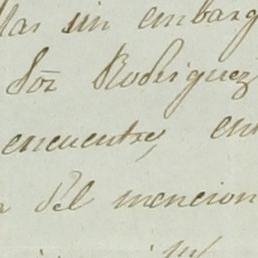 llar sin embarg
Sor Rodriguez
encuentre, en
del mencion